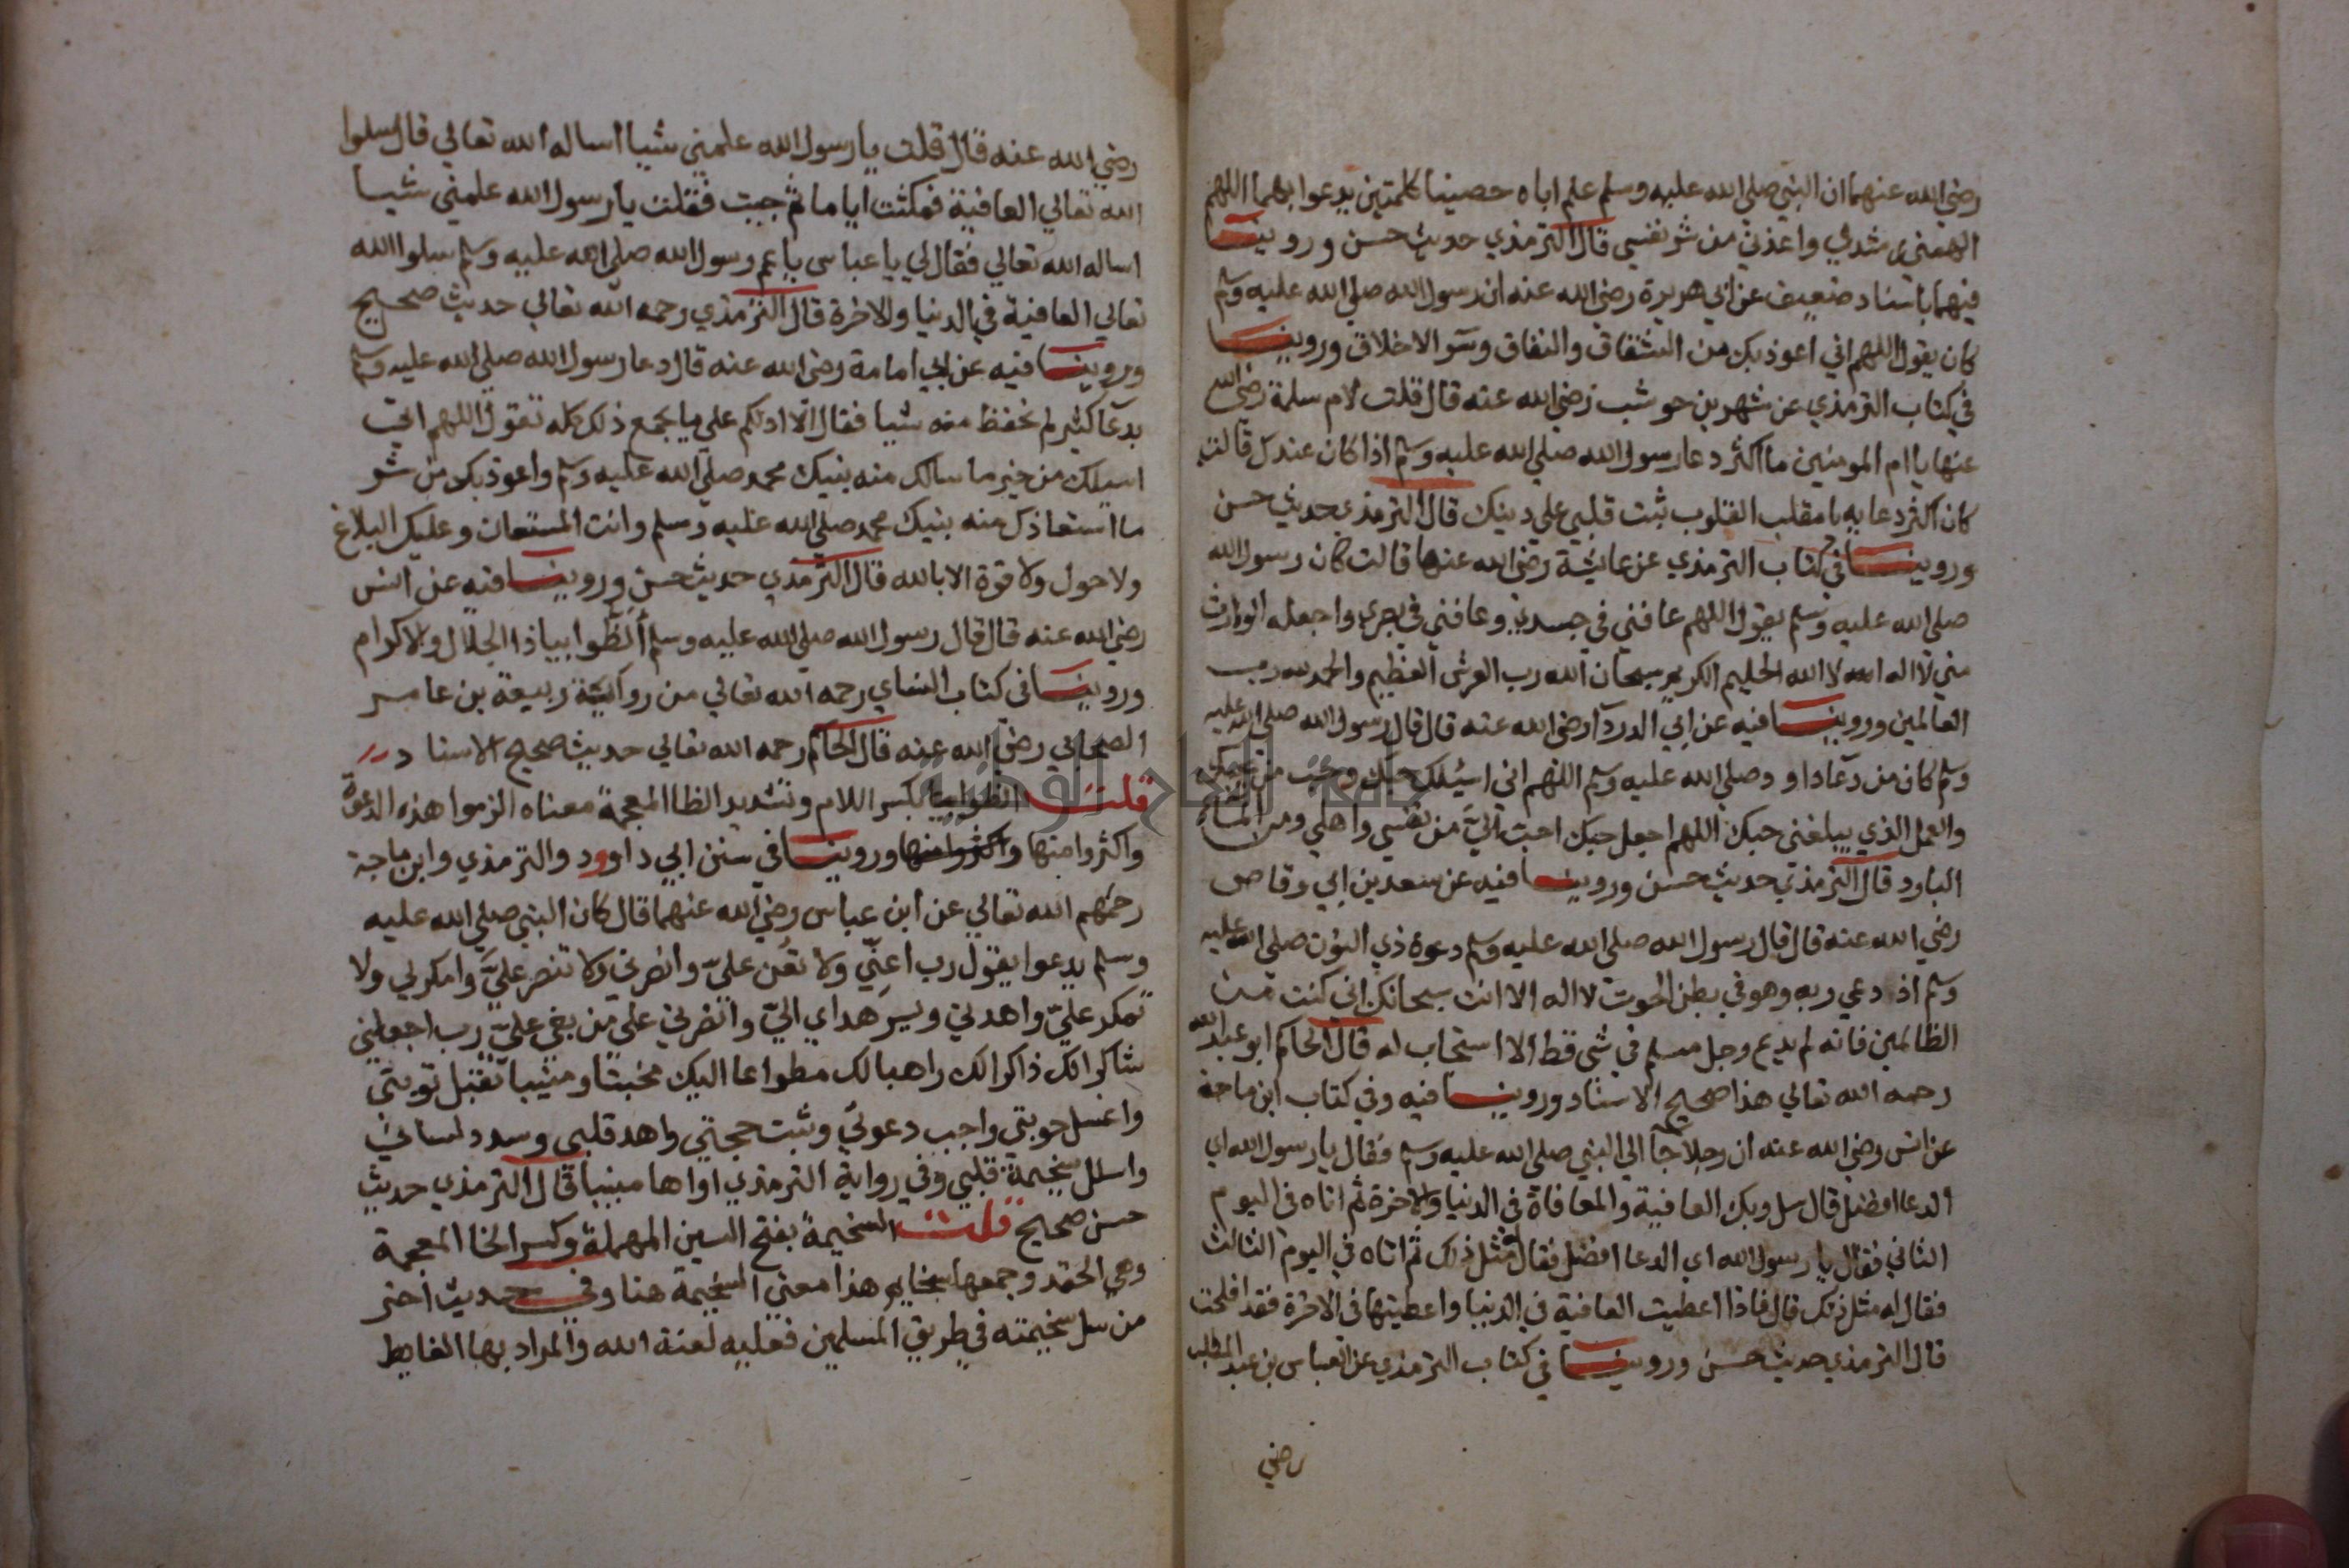 رضي الله عنهما ان النبي صلى الله عليه وسلم علم اباه حصينا كلمتين يدعوا بهما اللهم
الهمني رشدي واعذني من شر نفسي قال الترمذي حديث حسن وروينا
فيهما باسناد ضعيف عن ابي هريرة رضي الله عنه ان رسول الله صلي الله عليه وسلم
كان يقول اللهم اني اعوذ بك من الشقاق والنفاق وسوٓ الاخلاق وروينا
في كتاب الترمذي عن شهر بن حوشب رضي الله عنه قال قلت لام سلمة رضي الله
عنها يا ام المومنين ما اكثر دعا رسول الله صلي الله عليه وسلم اذا كان عندك قالت
كان اكثر دعايه يا مقلب القلوب ثبت قلبي علي دينك قال الترمذي حديث حسن
وروينا في كتاب الترمذي عن عايشة رضي الله عنها قالت كان رسول الله
صلي الله عليه وسلم يقول اللهم عافني في جسدي وعافني في بصري واجعله الوارث
مني لا اله الا الله الحليم الكريم سبحان الله رب العرش العظيم والحمد لله رب
العالمين وروينا فيه عن ابي الدردآ رضي الله عنه قال قال رسول الله صلي الله عليه
وسلم كان من دعآ داود صلي الله عليه وسلم اللهم اني اسيلك حبك وحب من يحبك
والعمل الذي يبلغني حبك اللهم اجعل حبك احب الي من نفسي واهلي ومن الماء
البارد قال الترمذي حديث حسن وروينا فيه عن سعد بن ابي وقاص
رضي الله عنه قال قال رسول الله صلي الله عليه وسلم دعوة ذي النون صلي الله عليه
وسلم اذ دعي ربه وهو في بطن الحوت لا اله الا انت سبحانك اني كنت من
الظالمين فانه لم يدع رجل مسلم في شي قط الا استجاب له قال الحاكم ابو عبد الله
رحمه الله تعالي هذا صحيح الاسناد وروينا فيه وفي كتاب ابن ماجة
عن انس رضي الله عنه ان رجلا جآ الي النبي صلي الله عليه وسلم فقال يا رسول الله اي
الدعا افضل قال سل ربك العافية والمعافاة في الدنيا والاخرة ثم اتاه في اليوم
الثاني فقال يا رسول الله اي الدعا افضل فقال له مثل ذلك ثم اتاه في اليوم الثالث
فقال له مثل ذلك قال فاذا اعطيت العافية في الدنيا واعطيتها في الاخرة فقد افلحت
قال الترمذي حديث حسن وروينا في كتاب الترمذي عن العباس بن عبد المطلب
رضي
رضي الله عنه قال قلت يا رسول الله علمني شيا اساله الله تعالي قال سلوا
الله تعالي العافية فمكثت اياما ثم جيت فقلت يا رسول الله علمني شيا
اساله الله تعالي فقال لي يا عباس يا عم رسول الله صلي الله عليه وسلم سلوا الله
تعالي العافية في الدنيا والاخرة قال الترمذي رحمه الله تعالي حديث صحيح
وروينا فيه عن ابي امامة رضي الله عنه قال دعا رسول الله صلي الله عليه وسلم
بدعآ كثير لم نحفظ منه شيا فقال الا ادلكم علي ما يجمع ذلك كله تقول اللهم اني
اسيلك من خير ما سالك منه بنيك محمد صلي الله عليه وسلم واعوذ بك من شر
ما استعاذك منه بنيك محمد صلي الله عليه وسلم وانت المستعان وعليك البلاغ
ولا حول ولا قوة الا بالله قال الترمذي حديث حسن وروينا فيه عن انس
رضي الله عنه قال قال رسول الله صلي الله عليه وسلم أَلِظّوا بياذا الجلال والاكرام
وروينا في كتاب النساي رحمه الله تعالي من رواية ربيعة بن عامر
الصحابي رضي الله عنه قال الحاكم رحمه الله تعالي حديث صحيح الاسناد
قلت الظوابيا بكسر اللام وتشديد الظا المعجمة معناه الزموا هذه الدعوة
واكثروا منها واكثروا منها وروينا في سنن ابي داوود والترمذي وابن ماجة
رحمهم الله تعالي عن ابن عباس رضي الله عنهما قال كان النبي صلي الله عليه
وسلم يدعوا يقول رب اعِنّي ولا تعُن عليّ وانصرني ولا تنصر عليَّ وامكر لي ولا
تمكر عليّ واهدني ويسر هداي اليّ وانصرني علي من بغي عليّ رب اجعلني
شاكرا لك ذاكرا لك راهبا لك مطواعا اليك مخبتا ومنيبا تقبل توبتي
واغسل حوبتي واجب دعوتي وثبت حجتي واهد قلبي وسدد لساني
واسلل سخيمة قلبي وفي رواية الترمذي اواها منيبا قال الترمذي حديث
حسن صحيح قلت السخيمة بفتح السين المهملة وكسر الخا المعجمة
وهي الحقد وجمعها سخايم هذا معني السخيمة هنا وفي حديث اخر
من سل سخيمته في طريق المسلمين فعليه لعنة الله والمراد بها الغايط
جامعة النجاح الوطنية